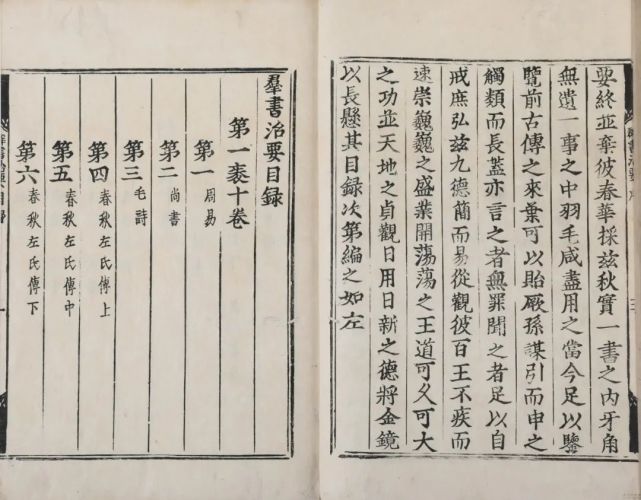 要終並棄彼春華採茲秋實一書之內牙角
無遺一事之中羽毛咸盡用之當今足以鑒
覽前古傳之來葉可以貽厥孫謀引而申之
觸類而長蓋亦言之者無罪聞之者足以自
戒庶弘茲九德簡而易從觀彼百王不疾而
速崇巍巍之盛業開蕩蕩之王道可久可大
之功並天地之貞觀日用日新之德將金鏡
以長懸其目錄次第編之如左
羣書治要目録
第一袠十卷
第一 周易
第二 尚書
第三 毛詩
第四 春秋左氏傳上
第五 春秋左氏傳中
第六 春秋左氏傳下